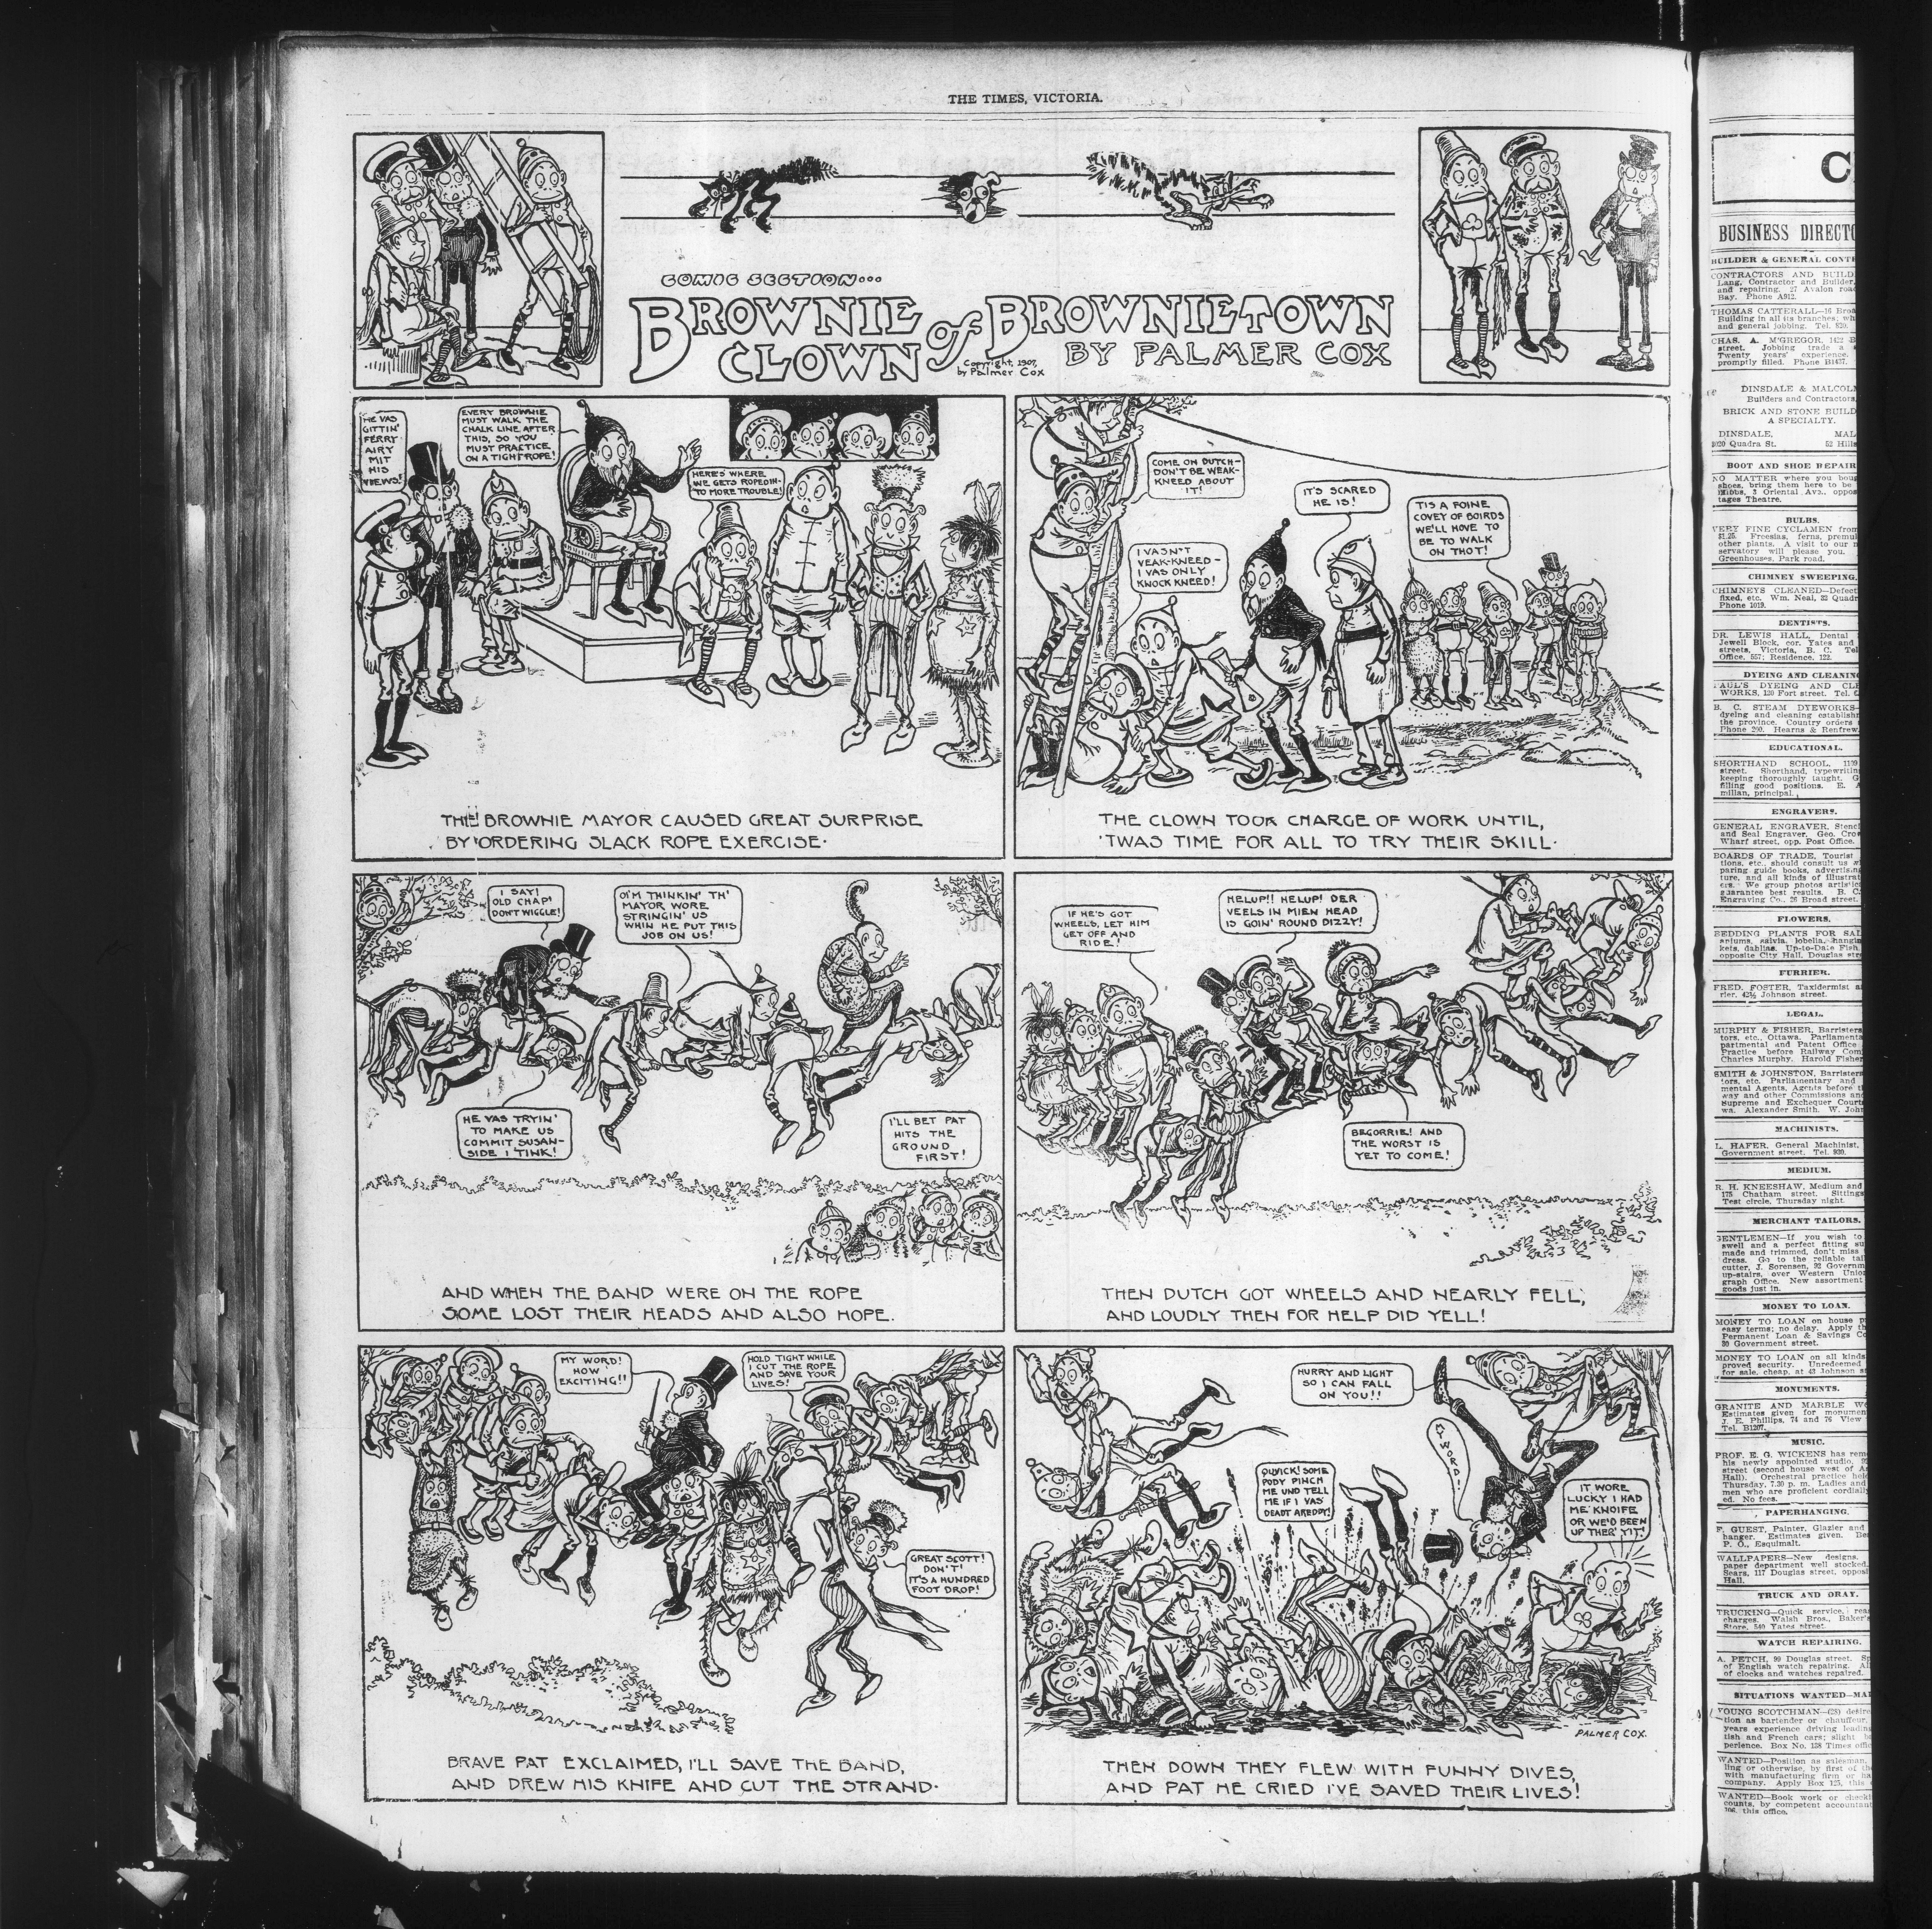 THE TIMES, VICTORIA.
COMIC SECTION...
BROWNIE CLOWN of BROWNIETOWN
BY PALMER COX
Copyright, 1907,
by Palmer Cox
HE VAS
GITTIN'
FERRY
AIRY
MIT
HIS
VIEWS!
EVERY BROWNIE
MUST WALK THE
CHALK LINE AFTER
THIS, SO YOU
MUST PRACTICE
ON A TIGHTROPE!
HERE'S WHERE
WE GETS ROPED IN-
TO MORE TROUBLE!
THE BROWNIE MAYOR CAUSED GREAT SURPRISE
BY ORDERING SLACK ROPE EXERCISE.
COME ON DUTCH-
DON'T BE WEAK-
KNEED ABOUT
IT!
I VASN'T
VEAK-KNEED-
I VAS ONLY
KNOCK KNEED!
IT'S SCARED
HE IS!
TIS A FOINE
COVEY OF BOIRDS
WE'LL HOVE TO
BE TO WALK
ON THOT!
THE CLOWN TOOK CHARGE OF WORK UNTIL,
'TWAS TIME FOR ALL TO TRY THEIR SKILL.
I SAY!
OLD CHAP!
DON'T WIGGLE!
OI'M THINKIN' TH'
MAYOR WORE
STRINGIN' US
WHIN HE PUT THIS
JOB ON US!
HE VAS TRYIN'
TO MAKE US
COMMIT SUSAN-
SIDE I TINK!
I'LL BET PAT
HITS THE
GROUND
FIRST!
AND WHEN THE BAND WERE ON THE ROPE
SOME LOST THEIR HEADS AND ALSO HOPE.
IF HE'S GOT
WHEELS, LET HIM
GET OFF AND
RIDE!
HELUP!! HELUP! DER
VEELS IN MIEN HEAD
IS GOIN' ROUND DIZZY!
BEGORRIE! AND
THE WORST IS
YET TO COME!
THEN DUTCH GOT WHEELS AND NEARLY FELL,
AND LOUDLY THEN FOR HELP DID YELL!
MY WORD!
HOW
EXCITING!!
HOLD TIGHT WHILE
I CUT THE ROPE
AND SAVE YOUR
LIVES!
GREAT SCOTT!
DON'T!
IT'S A HUNDRED
FOOT DROP!
BRAVE PAT EXCLAIMED, I'LL SAVE THE BAND,
AND DREW HIS KNIFE AND CUT THE STRAND.
HURRY AND LIGHT
SO I CAN FALL
ON YOU!!
MY WORD!
QUVICK! SOME
PODY PINCH
ME UND TELL
ME IF I VAS
DEADT AREDDY!
IT WORE
LUCKY I HAD
ME KNOIFE
OR WE'D BEEN
UP THER' YIT!
PALMER COX.
THEN DOWN THEY FLEW WITH FUNNY DIVES,
AND PAT HE CRIED I'VE SAVED THEIR LIVES!
BUSINESS DIRECTO
BUILDER & GENERAL CONT
CONTRACTORS AND BUILD
Lang, Contractor and Builder,
and repairing. 27 Avalon road
Bay. Phone A912.
THOMAS CATTERALL—16 Broa
Building in all its branches; wh
and general jobbing. Tel. 820.
CHAS. A. M'GREGOR, 1422 B
street. Jobbing trade a
Twenty years' experience.
promptly filled. Phone B1437.
DINSDALE & MALCOL
Builders and Contractors,
BRICK AND STONE BUILD
A SPECIALTY.
DINSDALE, MAL
3020 Quadra St. 52 Hills
BOOT AND SHOE REPAIR
NO MATTER where you boug
shoes, bring them here to be
Hibbs, 3 Oriental Ave., oppos
tages Theatre.
BULBS.
VERY FINE CYCLAMEN from
$1.25. Freesias, ferns, premul
other plants. A visit to our n
servatory will please you.
Greenhouses, Park road.
CHIMNEY SWEEPING.
CHIMNEYS CLEANED—Defect
fixed, etc. Wm. Neal, 32 Quadr
Phone 1019.
DENTISTS.
DR. LEWIS HALL, Dental
Jewell Block, cor. Yates and
streets, Victoria, B. C. Tel
Office, 557; Residence, 122.
DYEING AND CLEANING
PAUL'S DYEING AND CLE
WORKS, 120 Fort street. Tel.
B. C. STEAM DYEWORKS—
dyeing and cleaning establish
the province. Country orders
Phone 200. Hearns & Renfrew.
EDUCATIONAL.
SHORTHAND SCHOOL, 1109
street. Shorthand, typewritin
keeping thoroughly taught. G
filling good positions. E. A
millan, principal.
ENGRAVERS.
GENERAL ENGRAVER, Stenci
and Seal Engraver. Geo. Cro
Wharf street, opp. Post Office.
BOARDS OF TRADE, Tourist
tions, etc., should consult us w
paring guide books, advertisin
ture, and all kinds of illustrat
ers. We group photos artistic
guarantee best results. B. C.
Engraving Co., 26 Broad street.
FLOWERS.
BEDDING PLANTS FOR SAL
aniums, salvia, lobelia, hangin
kets, dahlias. Up-to-Date Fish
opposite City Hall, Douglas str
FURRIER.
FRED. FOSTER, Taxidermist a
rier, 42½ Johnson street.
LEGAL.
MURPHY & FISHER, Barristers
tors, etc., Ottawa. Parliamenta
partmental and Patent Office
Practice before Railway Com
Charles Murphy. Harold Fisher
SMITH & JOHNSTON, Barristers
tors, etc. Parliamentary and
mental Agents, Agents before t
way and other Commissions an
Supreme and Exchequer Court
wa. Alexander Smith. W. John
MACHINISTS.
L. HAFER, General Machinist,
Government street. Tel. 930.
MEDIUM.
R. H. KNEESHAW, Medium and
175 Chatham street. Sittings
Test circle, Thursday night.
MERCHANT TAILORS.
GENTLEMEN—If you wish to
swell and a perfect fitting su
made and trimmed, don't miss
dress. Go to the reliable tai
cutter, J. Sorensen, 92 Governm
up-stairs, over Western Union
graph Office. New assortment
goods just in.
MONEY TO LOAN.
MONEY TO LOAN on house p
easy terms; no delay. Apply th
Permanent Loan & Savings Co
30 Government street.
MONEY TO LOAN on all kinds
proved security. Unredeemed
for sale, cheap, at 43 Johnson st
MONUMENTS.
GRANITE AND MARBLE WO
Estimates given for monumen
J. E. Phillips, 74 and 76 View
Tel. B1207.
MUSIC.
PROF. E. G. WICKENS has rem
his newly appointed studio,
street (second house west of A
Hall). Orchestral practice held
Thursday, 7.30 p. m. Ladies and
men who are proficient cordially
ed. No fees.
PAPERHANGING.
F. GUEST, Painter, Glazier and
hanger. Estimates given. Be
P. O., Esquimalt.
WALLPAPERS—New designs.
paper department well stocked.
Sears, 117 Douglas street, opposi
Hall.
TRUCK AND DRAY.
TRUCKING—Quick service, rea
charges. Walsh Bros., Baker's
Store, 540 Yates street.
WATCH REPAIRING.
A. PETCH, 99 Douglas street. Sp
of English watch repairing. Al
of clocks and watches repaired.
SITUATIONS WANTED—MA
YOUNG SCOTCHMAN—(28) desire
tion as bartender or chauffeur,
years experience driving leadin
tish and French cars; slight b
perience. Box No. 138 Times offic
WANTED—Position as salesman,
ling or otherwise, by first of th
with manufacturing firm or ha
company. Apply Box 125, this
WANTED—Book work or checki
counts, by competent accountant
this office.